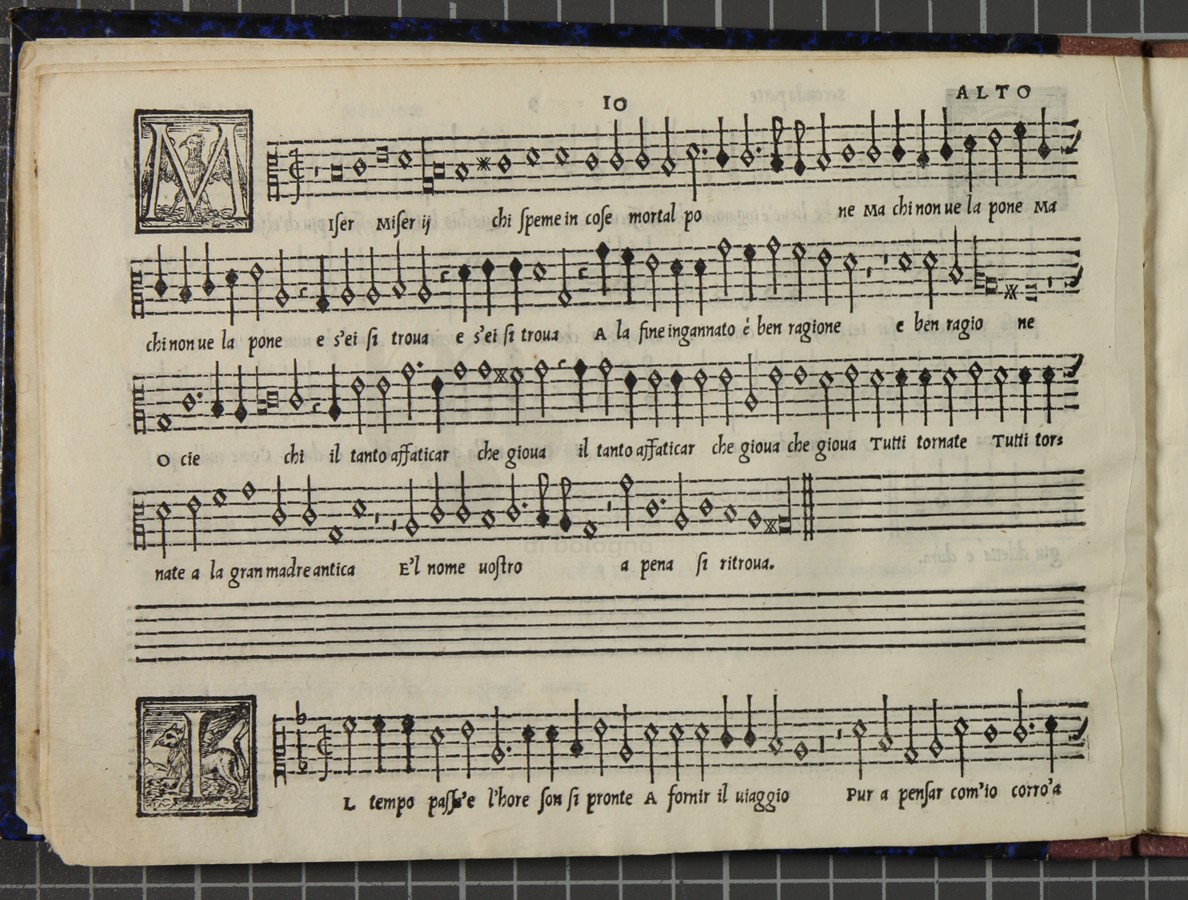 10 ALTO
M Iſer Miſer ij chi ſpeme in coſe mortal po ne Ma chi non ue la pone Ma
chi non ue la pone e s'ei ſi troua e s'ei ſi troua A la fine ingannato é ben ragione e ben ragio ne
O cie chi il tanto affaticar che gioua il tanto affaticar che gioua che gioua Tutti tornate Tutti tor⸗
nate a la gran madre antica E'l nome uoſtro a pena ſi ritroua.
I L tempo paſſa'e l'hore ſon ſi pronte A fornir il uiaggio Pur a penſar com'io corro'a